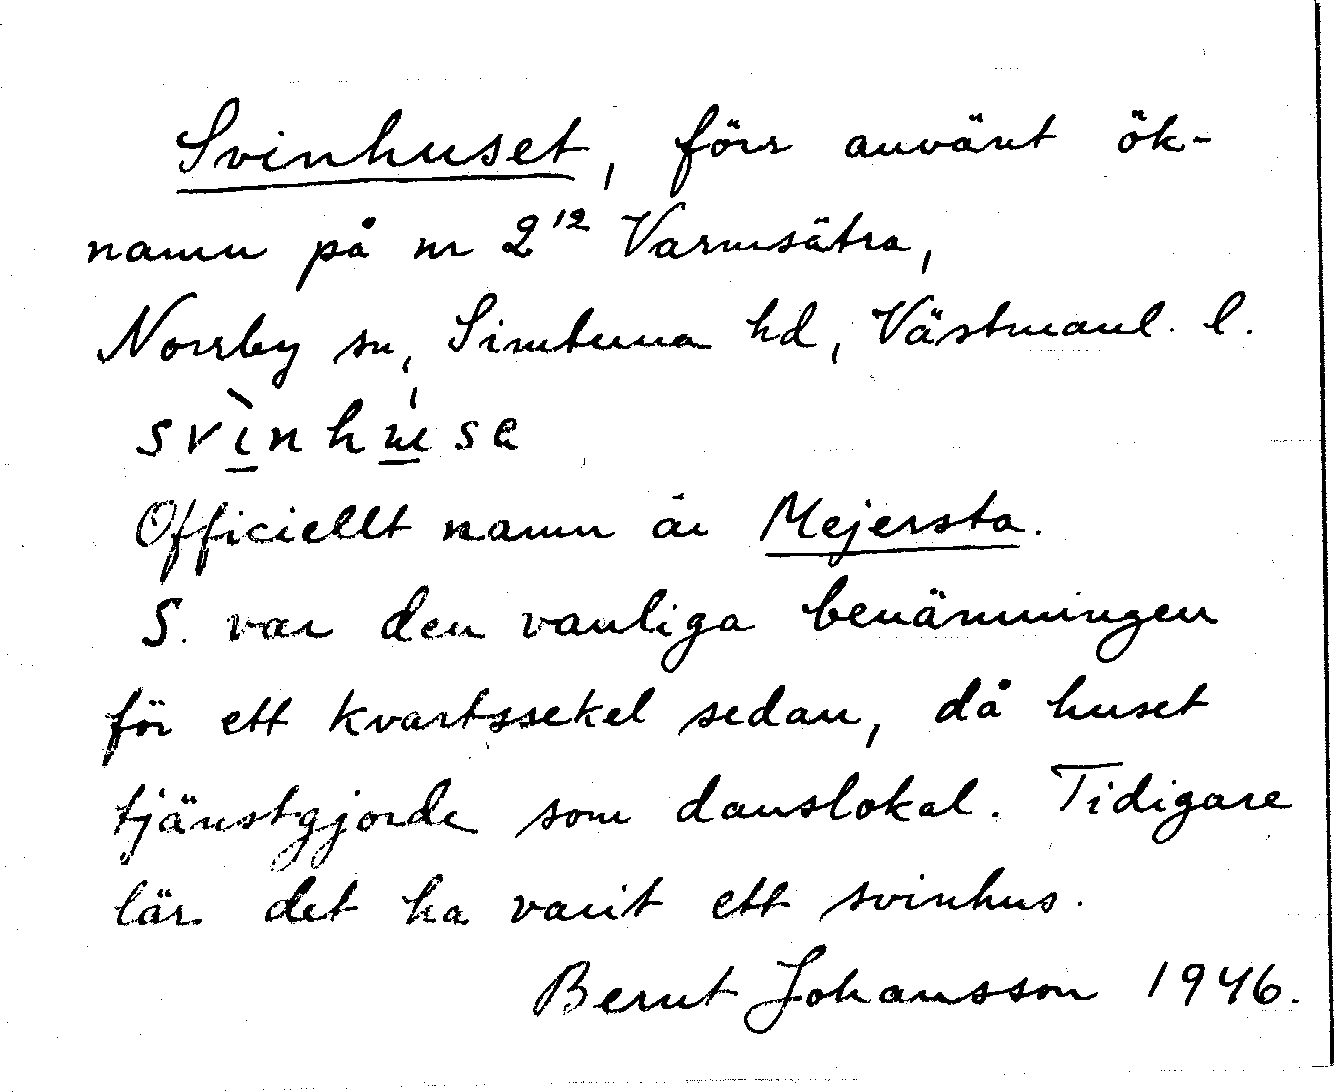 Svinhuset, förr använt ök-
namn på nr 2¹² Varmsätra,
Norrby sn, Simtuna hd, Västmanl. l.
svì̲nhu̲̍se
Officiellt namn är Mejersta.
S. var den vanliga benämningen
för ett kvartssekel sedan, då huset
tjänstgjorde som danslokal. Tidigare
lär det ha varit ett svinhus.
Bernt Johansson 1946.